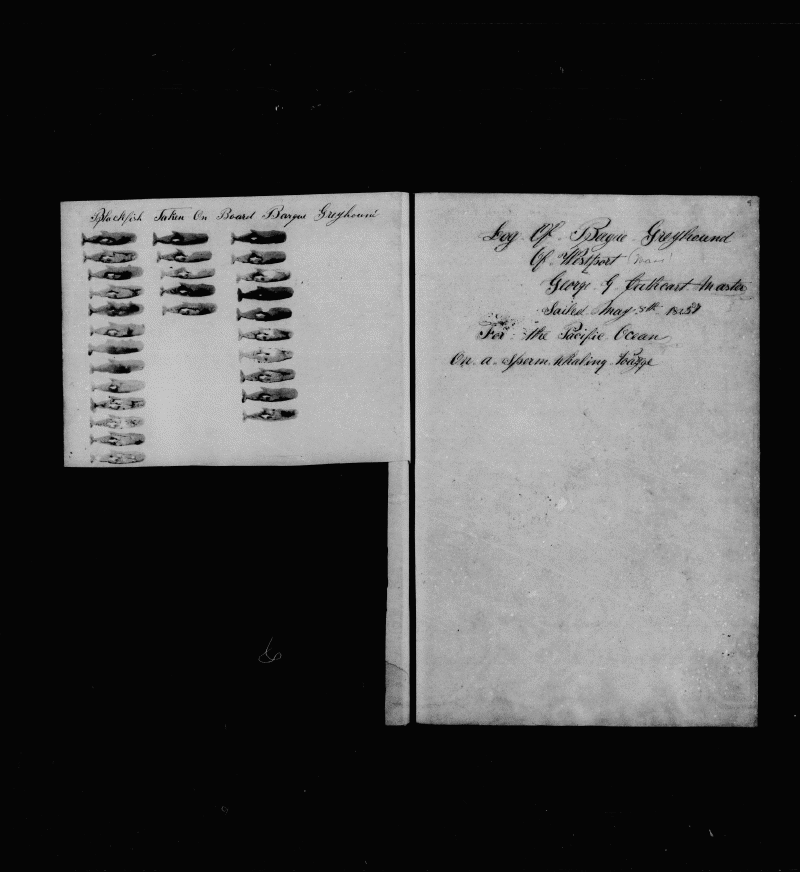 Blackfish Taken On Board Barque Greyhound
Log Of Barque Greyhound
Of Westport
George G Cathcart Master
Sailed May 5th
For the Pacific Ocean
On a Sperm Whaling